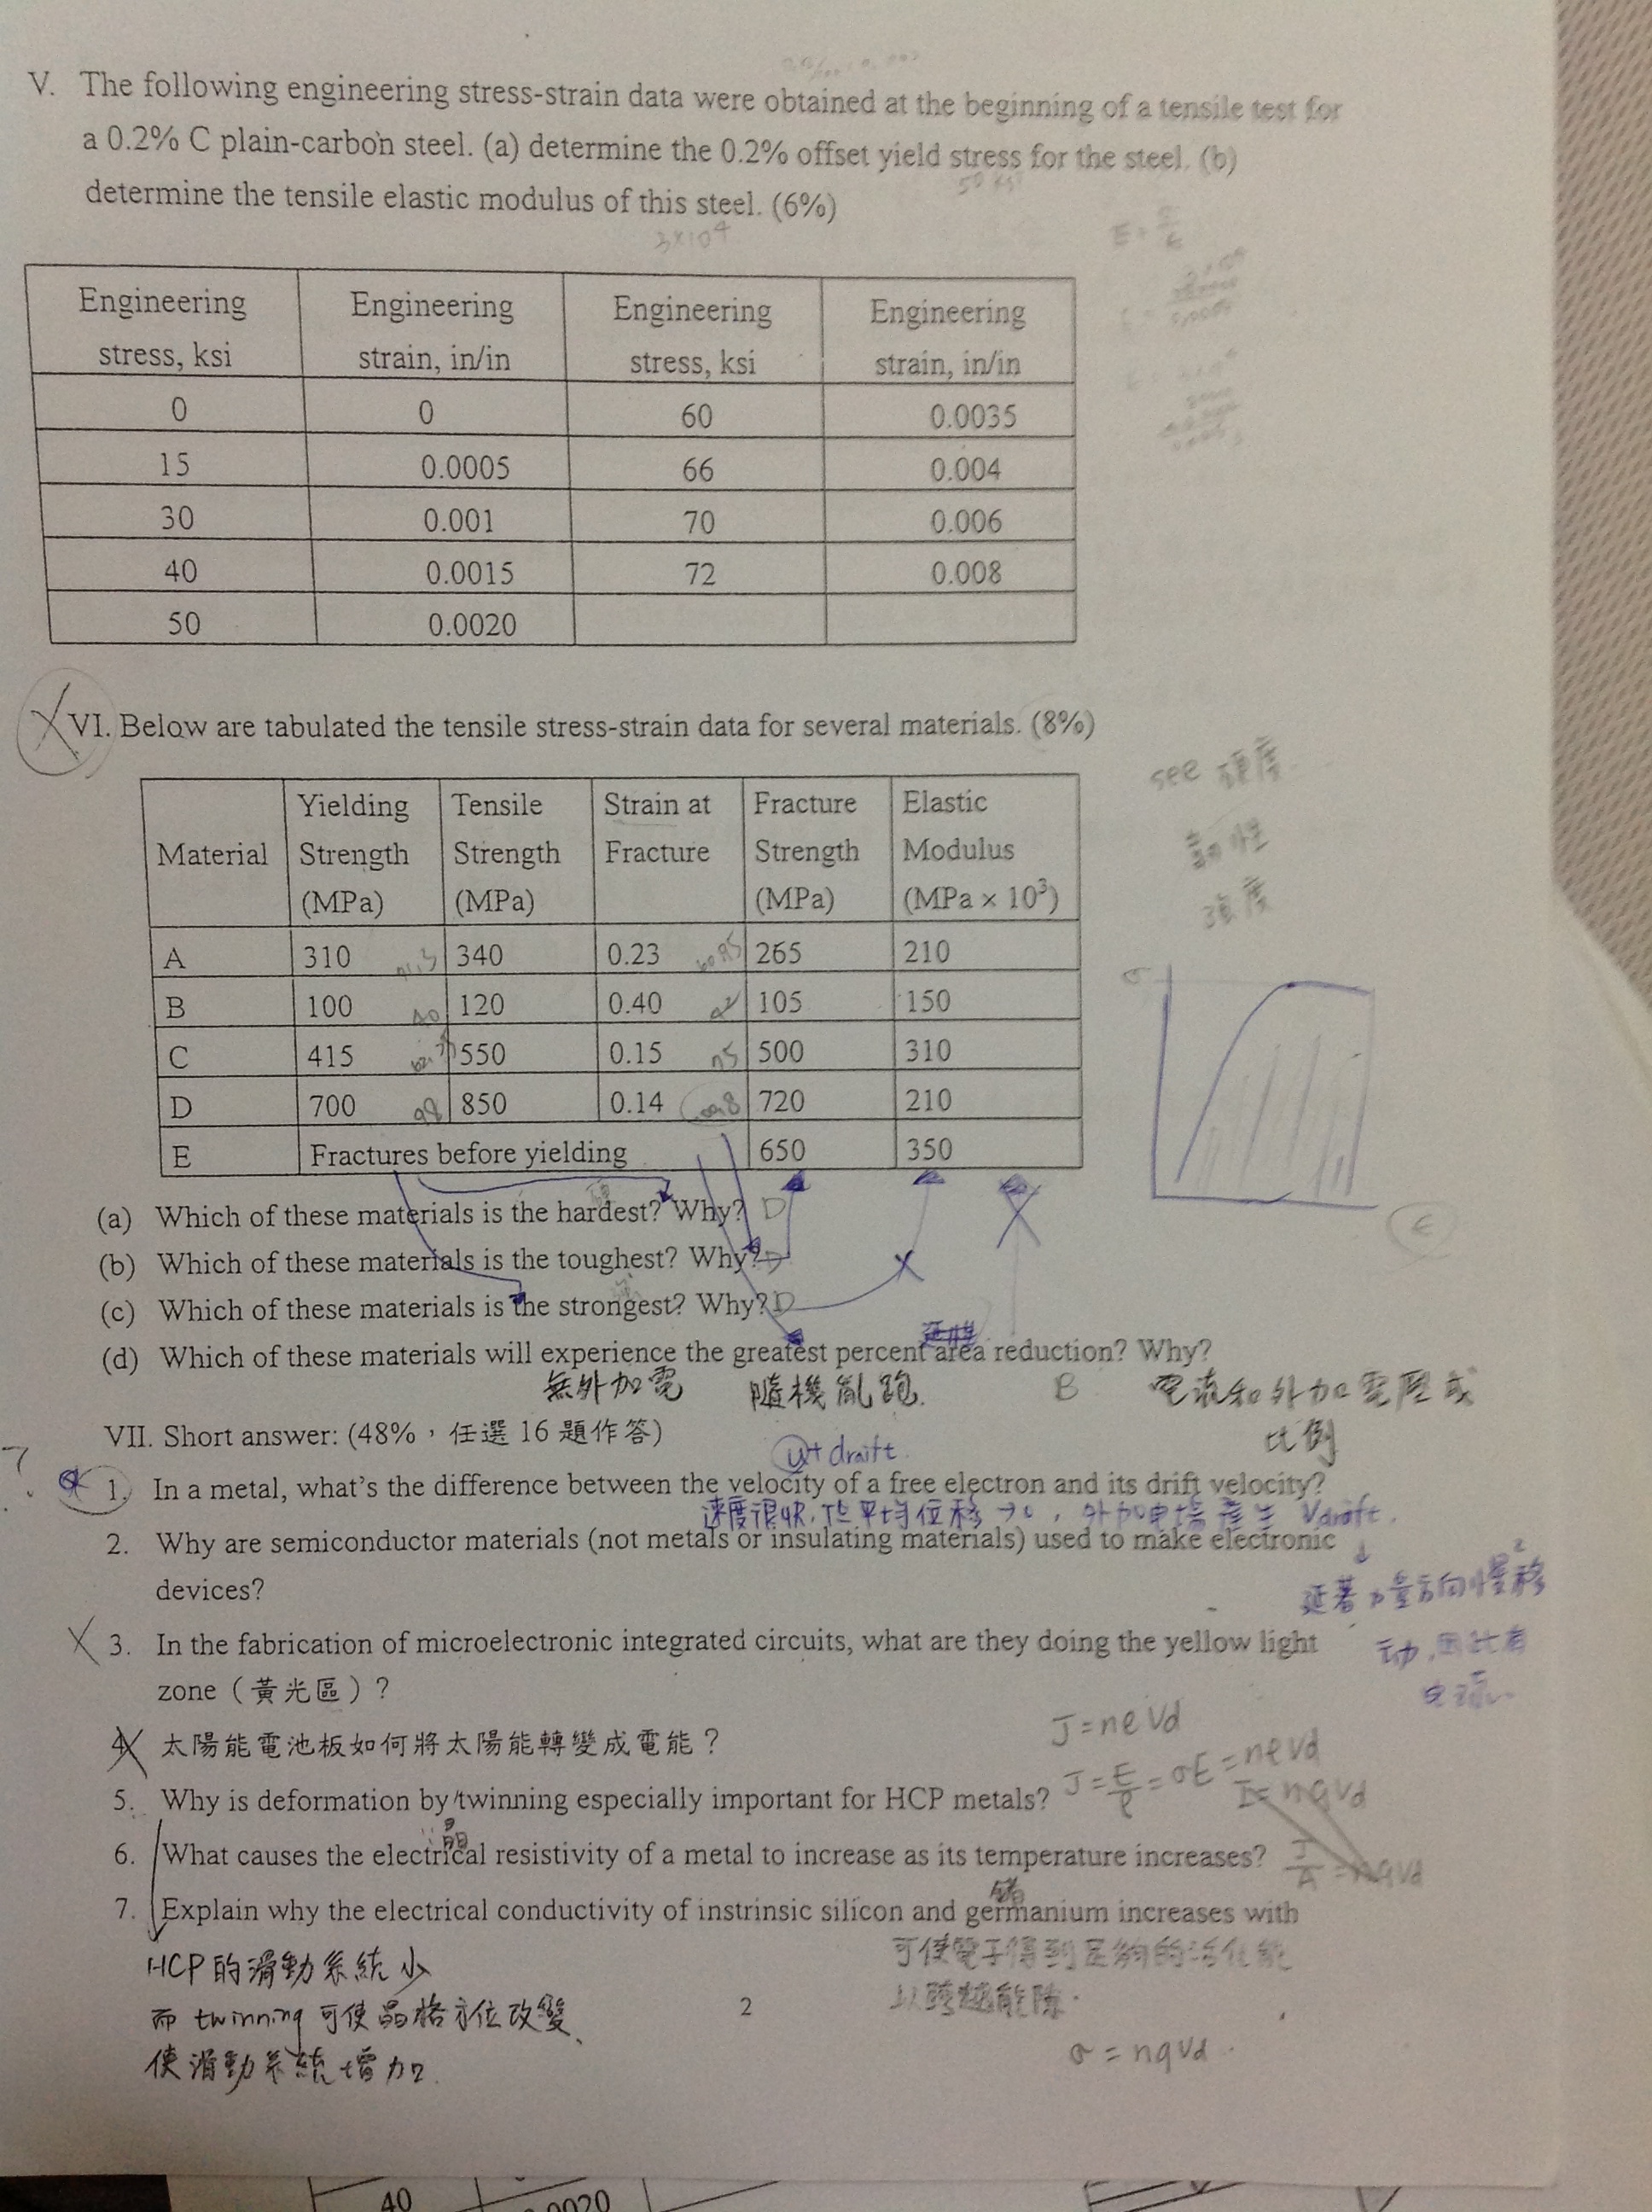 V. The following engineering stress-strain data were obtained at the beginning of a tensile test for
a 0.2% C plain-carbon steel. (a) determine the 0.2% offset yield stress for the steel. (b)
determine the tensile elastic modulus of this steel. (6%)
50 ksi
3×10⁴
Engineering stress, ksi Engineering strain, in/in Engineering stress, ksi Engineering strain, in/in
0 0 60 0.0035
15 0.0005 66 0.004
30 0.001 70 0.006
40 0.0015 72 0.008
50 0.0020
VI. Below are tabulated the tensile stress-strain data for several materials. (8%)
see 硬度
韌性
強度
Material Yielding Strength (MPa) Tensile Strength (MPa) Strain at Fracture Fracture Strength (MPa) Elastic Modulus (MPa × 10³)
A 310 340 0.23 265 210
B 100 120 0.40 105 150
C 415 550 0.15 500 310
D 700 850 0.14 720 210
E Fractures before yielding 650 350
σ
ε
(a) Which of these materials is the hardest? Why? D
(b) Which of these materials is the toughest? Why?
(c) Which of these materials is the strongest? Why? D
(d) Which of these materials will experience the greatest percent area reduction? Why?
無外加電 隨機亂跑. B 電流和外加電壓成
比例
VII. Short answer: (48%，任選 16 題作答)
1. In a metal, what's the difference between the velocity of a free electron and its drift velocity?
速度很快, 平均位移→0, 外加电場產生 Vdraift.
2. Why are semiconductor materials (not metals or insulating materials) used to make electronic
devices?
3. In the fabrication of microelectronic integrated circuits, what are they doing the yellow light
zone（黃光區）?
J=neVd
4. 太陽能電池板如何將太陽能轉變成電能？
J=E/ρ=σE=neVd
I=nqVd
5. Why is deformation by twinning especially important for HCP metals?
6. What causes the electrical resistivity of a metal to increase as its temperature increases?
I/A=nqVd
7. Explain why the electrical conductivity of instrinsic silicon and germanium increases with
可使電子得到足夠的活化能
以跨越能隙.
HCP的滑動系統少
而 twinning 可使晶格方位改變、
使滑動系統增加.
2
σ=nqVd
40
0.0020